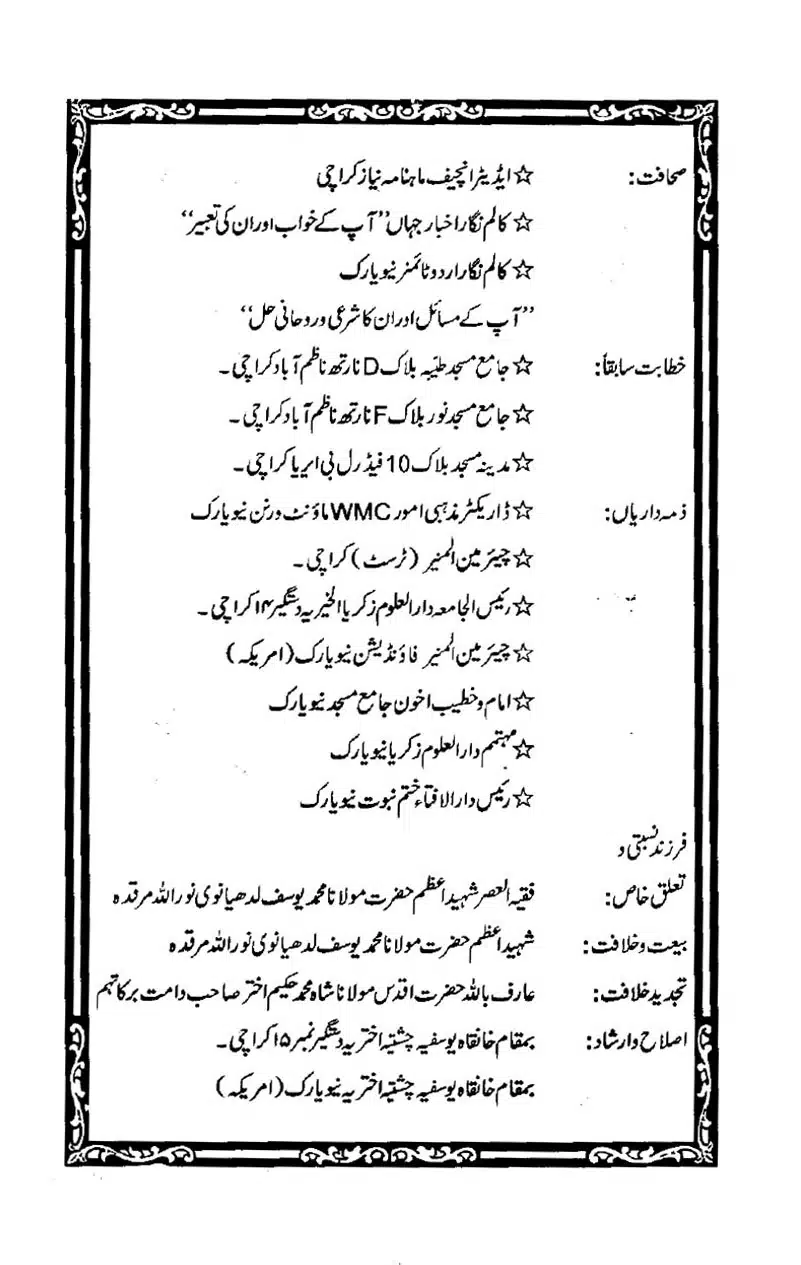 صحافت: ☆ ایڈیٹر انچیف ماہنامہ نیاز کراچی
☆ کالم نگار اخبار جہاں ”آپ کے خواب اور ان کی تعبیر“
☆ کالم نگار اردو ٹائمنر نیویارک
”آپ کے مسائل اور ان کا شرعی و روحانی حل“
خطابت سابقاً: ☆ جامع مسجد طیّبہ بلاک D نارتھ ناظم آباد کراچی۔
☆ جامع مسجد نور بلاک F نارتھ ناظم آباد کراچی۔
☆ مدینہ مسجد بلاک 10 فیڈرل بی ایریا کراچی۔
ذمہ داریاں: ☆ ڈاریکٹر مذہبی امور WMC ماؤنٹ ورنن نیویارک
☆ چیئرمین المنیر (ٹرسٹ) کراچی۔
☆ رئیس الجامعہ دارالعلوم زکریا الخیریہ دستگیر ۱۴ کراچی۔
☆ چیئرمین المنیر فاؤنڈیشن نیویارک (امریکہ)
☆ امام و خطیب اخون جامع مسجد نیویارک
☆ مہتمم دارالعلوم زکریا نیویارک
☆ رئیس دارالافتاء ختم نبوت نیویارک
فرزند نسبتی و
تعلق خاص: فقیہ العصر شہید اعظم حضرت مولانا محمد یوسف لدھیانوی نور اللہ مرقدہ
بیعت و خلافت: شہید اعظم حضرت مولانا محمد یوسف لدھیانوی نور اللہ مرقدہ
تجدید خلافت: عارف باللہ حضرت اقدس مولانا شاہ محمد حکیم اختر صاحب دامت برکاتہم
اصلاح و ارشاد: بمقام خانقاہ یوسفیہ چشتیہ اختریہ دستگیر نمبر ۱۵ کراچی۔
بمقام خانقاہ یوسفیہ چشتیہ اختریہ نیویارک (امریکہ)